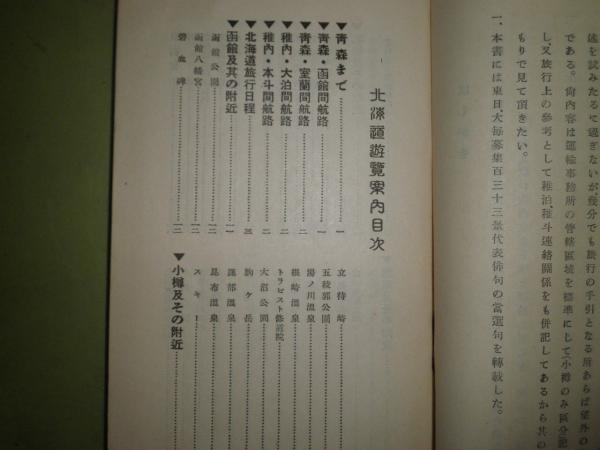 述を試みたるに過ぎないが、幾分でも旅行の手引となる所あらば望外の
である。尙內容は運輸事務所の管轄區域を標準にして(小樽のみ區分記
し、又旅行上の參考として稚泊、稚斗連絡關係をも併記してあるから其の
もりで見て頂きたい。
一、本書には東日、大每募集百三十三景代表俳句の當選句を轉載した。
北海道遊覽案內目次
▼靑森まで……一
▼靑森・函館間航路……一
▼靑森・室蘭間航路……二
▼稚內・大泊間航路……二
▼稚內・本斗間航路……二
▼北海道旅行日程……三
▼函館及其の附近……一一
函館公園……一一
函館八幡宮……一二
碧血碑……一三
立待岬
五稜郭公園
湯ノ川溫泉
根崎溫泉
トラピスト修道院
大沼公園
駒ケ岳
濁部溫泉
昆布溫泉
スキー
▼小樽及その附近